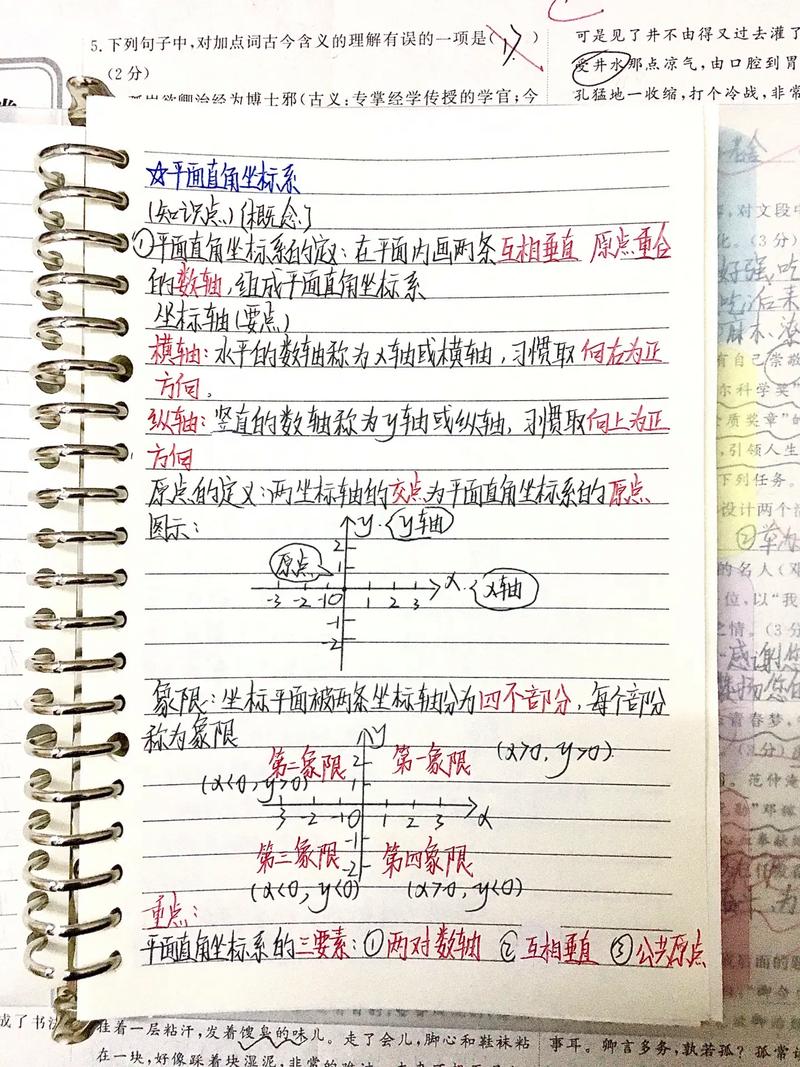 5.下列句子中,对加点词古今含义的理解有误的一项是( )
(2分)
可是见了井不由得又过去灌了
受井水那点凉气,由口腔到胃
孔猛地一收缩,打个冷战,非常
☆平面直角坐标系
(知识点)(概念)
①平面直角坐标系的定:在平面内画两条互相垂直 原点重合
的数轴,组成平面直角坐标系
坐标轴(要点)
横轴:水平的数轴称为x轴或横轴,习惯取向右为正
方向。
纵轴:竖直的数轴称为y轴或纵轴,习惯取向上为正
方向
原点的定义:两坐标轴的交点为平面直角坐标系的原点
图示:
y. y轴
2
1
原点
-3 -2 -1 0 1 2 3 x. x轴
-1
-2
象限:坐标平面被两条坐标轴分为四个部分,每个部分
称为象限
y
第二象限 2 第一象限 (x>0,y>0)
(x<0,y>0) 1
3 -2 -1 0 1 2 3 x
-1
第三象限 -2 第四象限
(x<0,y<0) (x>0,y<0)
重点:
平面直角坐标系的三要素:①两对数轴 ②互相垂直 ③公共原点
挂着一层粘汗,发着馊臭的味儿。走了会儿,脚心和鞋袜粘
在一块,好像踩着块湿泥,非常的难过
事耳。卿言多务,孰若孤?孤常读